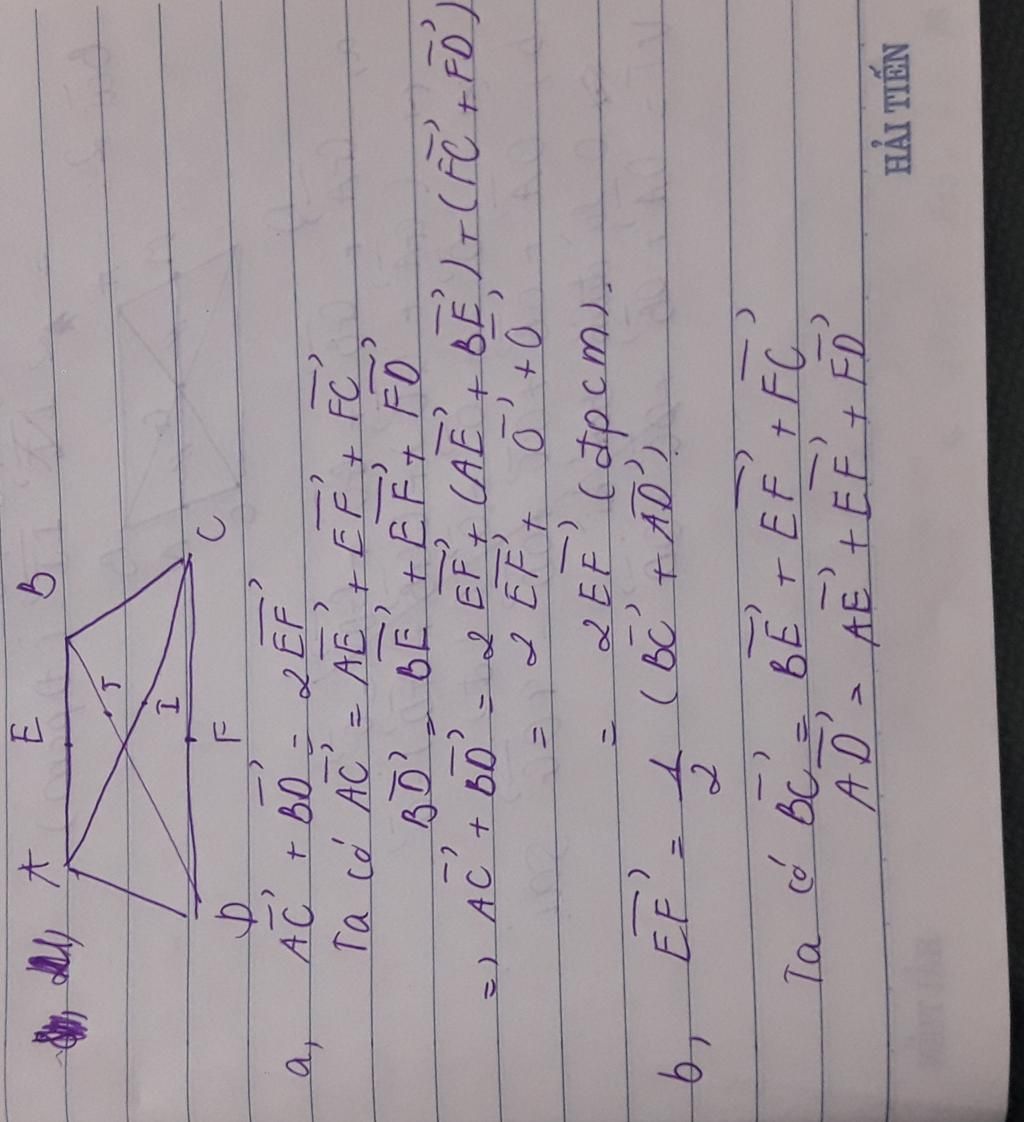 A E B
J
I
D F C
a, $\overrightarrow{AC} + \overrightarrow{BD} = 2\overrightarrow{EF}$
Ta có $\overrightarrow{AC} = \overrightarrow{AE} + \overrightarrow{EF} + \overrightarrow{FC}$
$\overrightarrow{BD} = \overrightarrow{BE} + \overrightarrow{EF} + \overrightarrow{FD}$
=) $\overrightarrow{AC} + \overrightarrow{BD} = 2\overrightarrow{EF} + (\overrightarrow{AE} + \overrightarrow{BE}) + (\overrightarrow{FC} + \overrightarrow{FD})$
$= 2\overrightarrow{EF} + \overrightarrow{0} + \overrightarrow{0}$
$= 2\overrightarrow{EF}$ (đpcm).
b, $\overrightarrow{EF} = \frac{1}{2}(\overrightarrow{BC} + \overrightarrow{AD})$
Ta có $\overrightarrow{BC} = \overrightarrow{BE} + \overrightarrow{EF} + \overrightarrow{FC}$
$\overrightarrow{AD} = \overrightarrow{AE} + \overrightarrow{EF} + \overrightarrow{FD}$
HẢI TIẾN